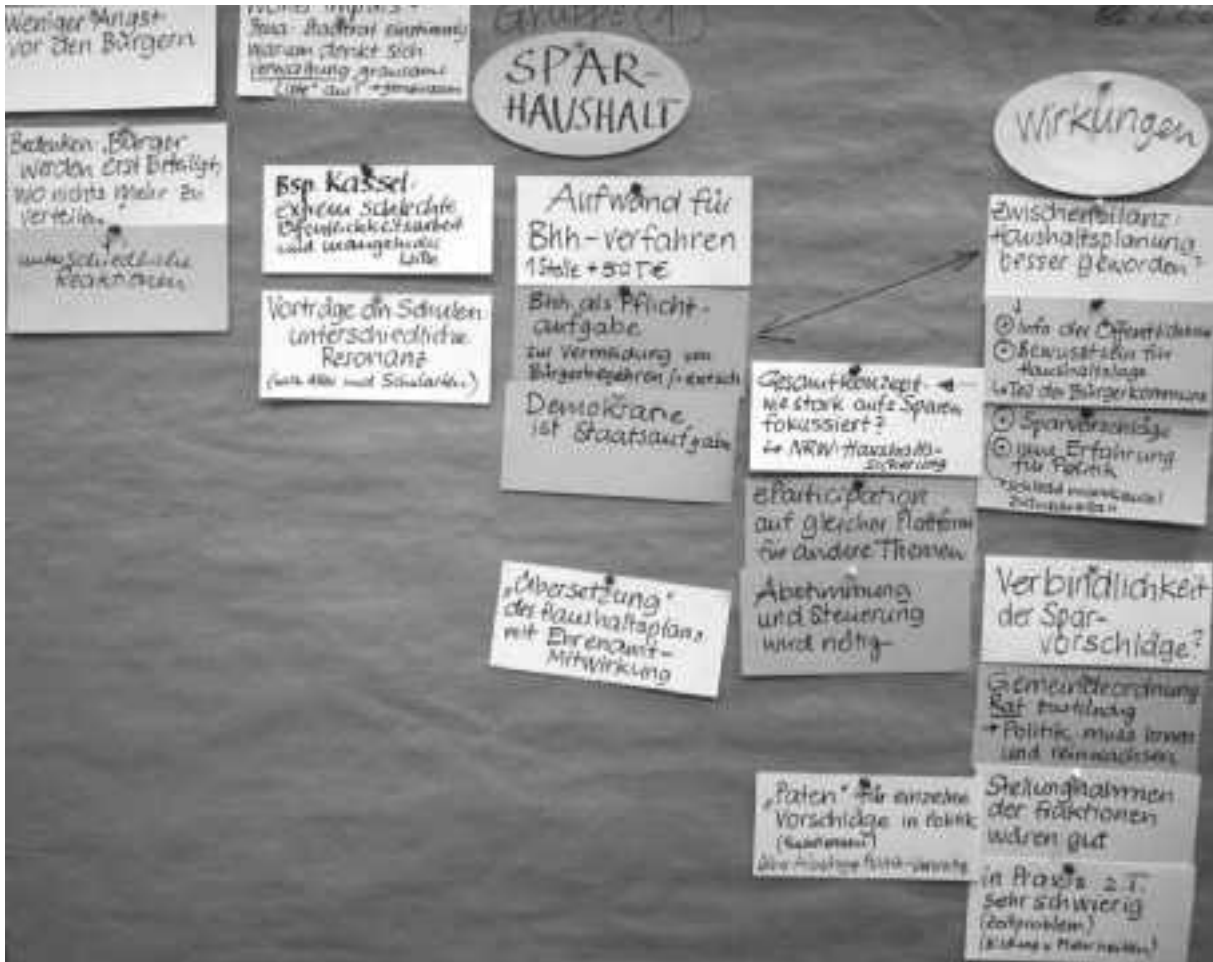 Weniger Angst
vor den Bürgern
Jena - Stadtrat einstimmig
warum denkt sich
Verwaltung grausame
Liste aus?
Gruppe 1
SPAR-
HAUSHALT
Wirkungen
Bedenken „Bürger
werden erst beteiligt,
wo nichts mehr zu
verteilen“
unterschiedliche
Reaktionen
Bsp. Kassel-
extrem schlechte
Öffentlichkeitsarbeit
und mangelnde
Vorträge an Schulen
unterschiedliche
Resonanz
(nach Alter und Schularten)
Aufwand für
Bhh-verfahren
1 Stelle + 50 T€
Bhh als Pflicht-
aufgabe
zur Vermeidung von
Bürgerbegehren
Demokratie
ist Staatsaufgabe
„Übersetzung“
des Haushaltsplans
mit Ehrenamt-
Mitwirkung
Gesamtkonzept-
wie stark aufs Sparen
fokussiert?
NRW: Haushalts-
sicherung
eParticipation
auf gleicher Plattform
für andere Themen
Abstimmung
und Steuerung
wird nötig
„Paten“ für einzelne
Vorschläge in Politik
Zwischenbilanz:
Haushaltsplanung
besser geworden?
+ Info der Öffentlichkeit
+ Bewusstsein für
Haushaltslage
↳ Teil der Bürgerkommune
+ Sparvorschläge
+ neue Erfahrung
für Politik
Verbindlichkeit
der Spar-
vorschläge?
Gemeindeordnung
Rat zuständig
→ Politik muss lernen
und reinwachsen
Stellungnahmen
der Fraktionen
wären gut
in Praxis z.T.
sehr schwierig
(Zeitproblem)